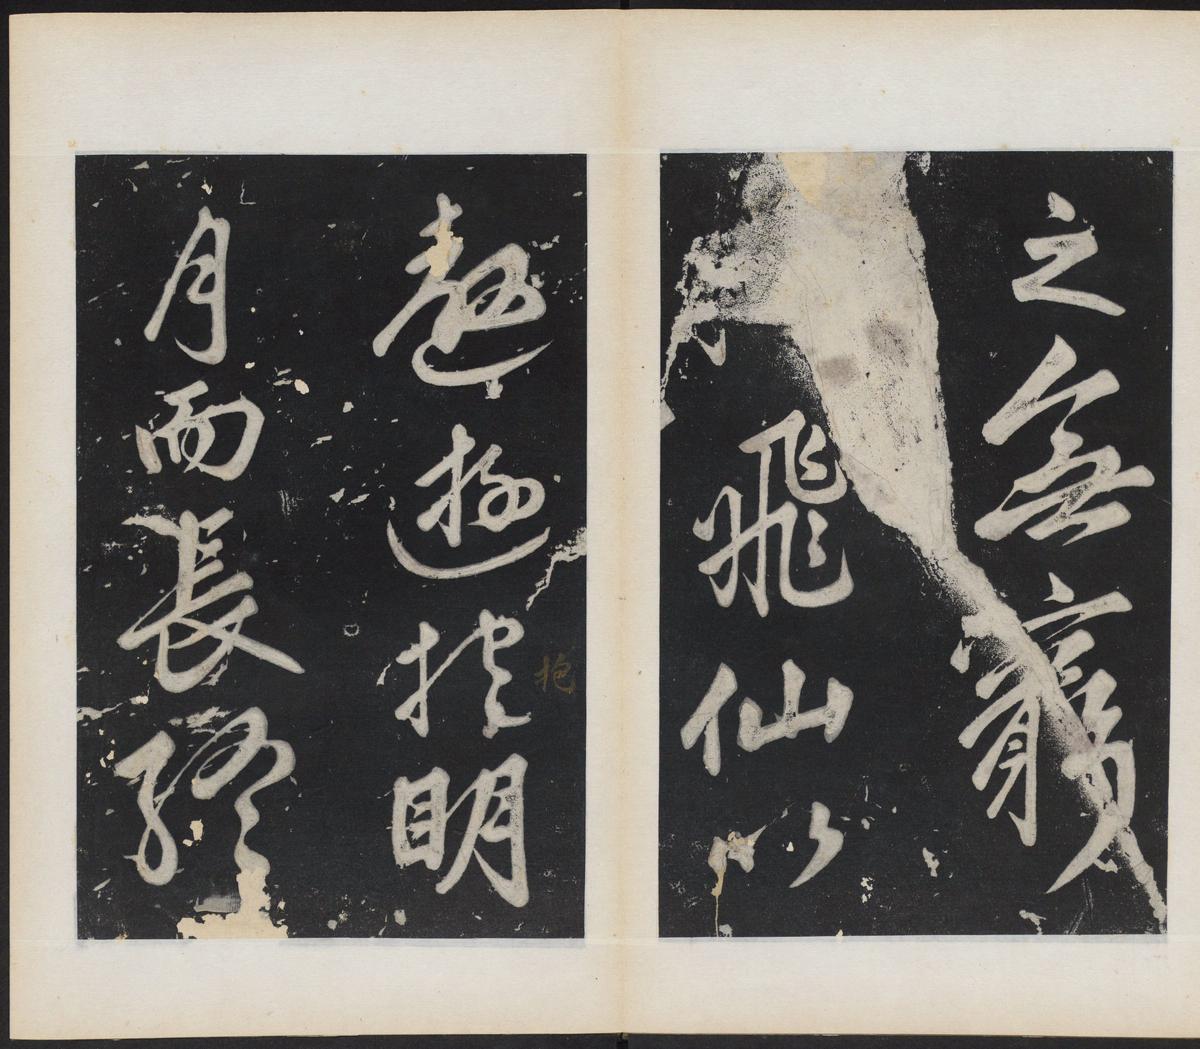 之無窮
飛仙以
遨遊抱明
抱
月而長終